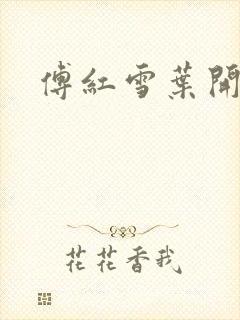 傅紅雪葉開
花花香我